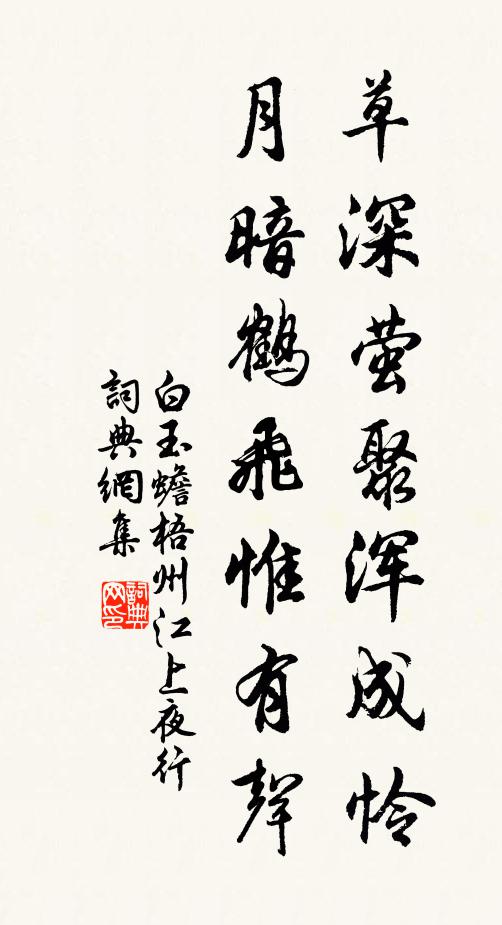 草深萤聚浑成怜
月暗鹤飛惟有聲
白玉蟾梧州江上夜行
詞典網集
詞典网印